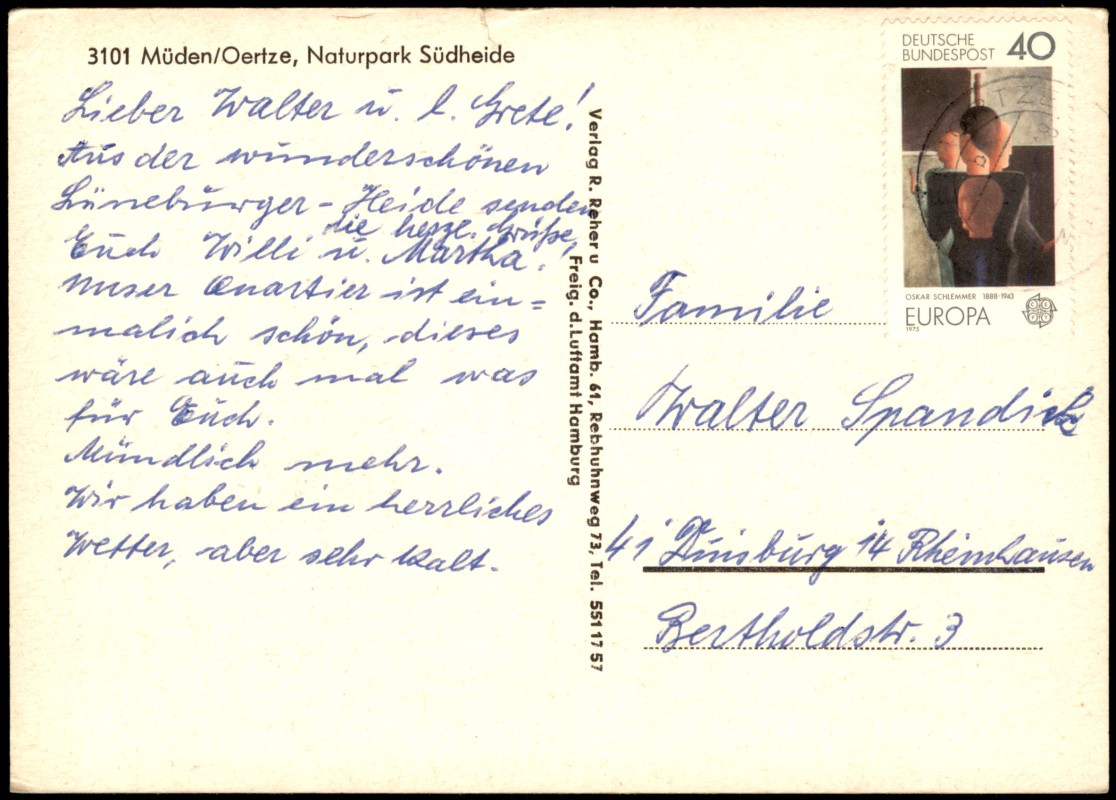 3101 Müden/Oertze, Naturpark Südheide
Lieber Walter u. l. Grete!
Aus der wunderschönen
Lüneburger - Heide senden
die herzl. Grüße,
Euch Willi u. Martha.
Unser Quartier ist ein=
malich schön, dieses
wäre auch mal was
für Euch.
Mündlich mehr.
Wir haben ein herrliches
Wetter, aber sehr kalt.
Verlag R. Reher u Co., Hamb. 61, Rebhuhnweg 73, Tel. 551 17 57
Freig. d. Luftamt Hamburg
DEUTSCHE
BUNDESPOST 40
OSKAR SCHLEMMER 1888-1943
EUROPA
1975
Familie
Walter Spandick
41 Duisburg 14 Rheinhausen
Bertholdstr. 3